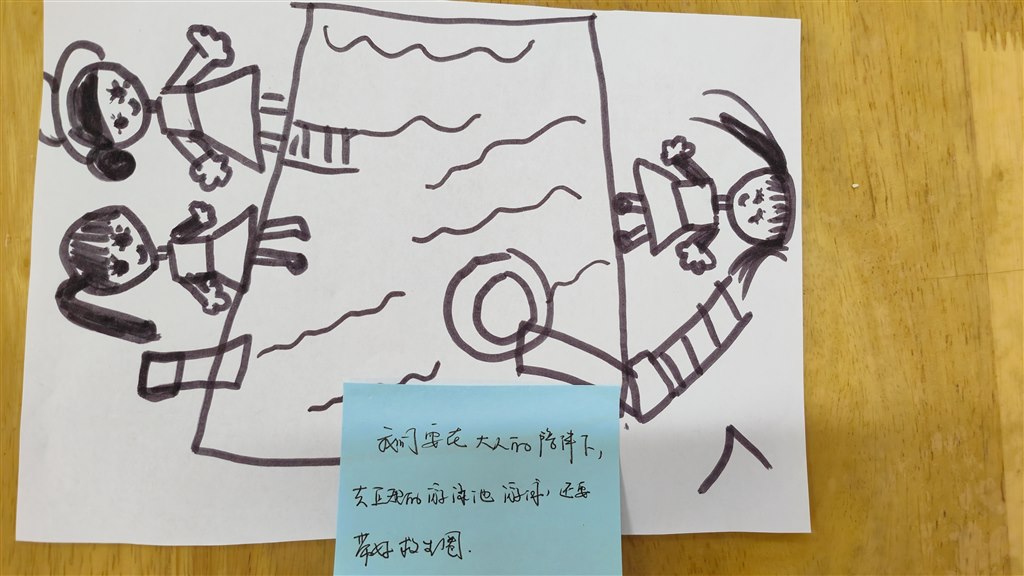 我们要在大人的陪伴下,
去正规的游泳池游泳,还要
带好救生圈.